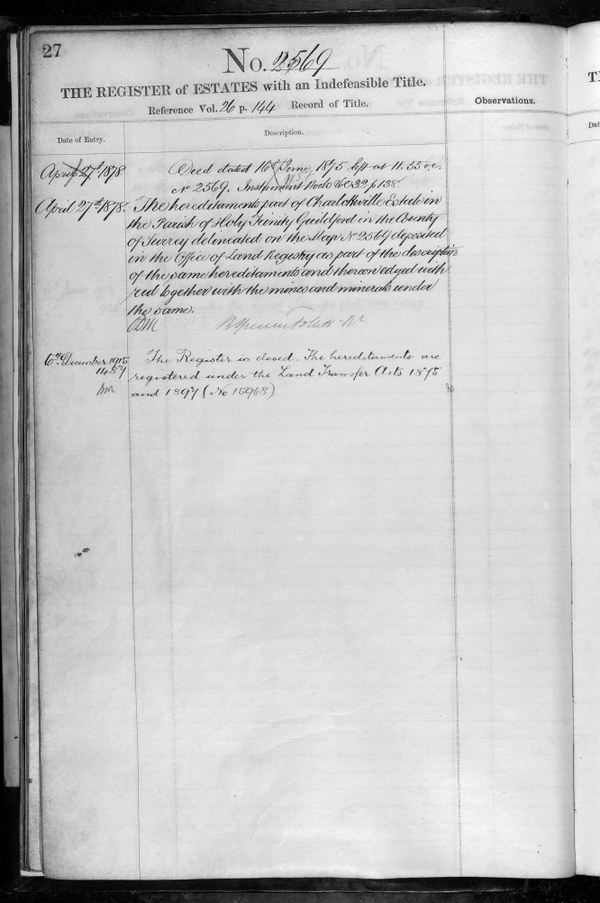 27
No. 2569
THE REGISTER of ESTATES with an Indefeasible Title.
Reference Vol. 26 p. 144 Record of Title.
Observations.
Date of Entry.
Description.
April 27th 1878
Deed dated 16th June 1875 left at 11.53 o.c.
No 2569. Instrument Book Vol 32 p 138.
April 27th 1878.
The hereditaments part of Charlotteville Estate in
the Parish of Holy Trinity Guildford in the County
of Surrey delineated on the Map No 2569 deposited
in the Office of Land Registry as part of the description
of the same hereditaments and thereon edged with
red together with the mines and minerals under
the same.
6th December 1915
1457
The Register is closed. The hereditaments are
registered under the Land Transfer Acts 1875
and 1897 (No 15968)